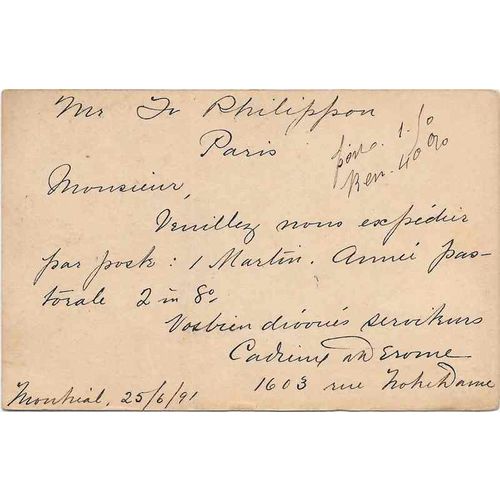 Mr Fr Philippon
Paris
1.50
Rem. 40 %
Monsieur,
Veuillez nous expédier
par poste: 1 Martin. Année pas-
torale 2 in 8o.
Vos bien dévoués serviteurs
Cadieux & Derome
1603 rue Notre Dame
Montréal, 25/6/91